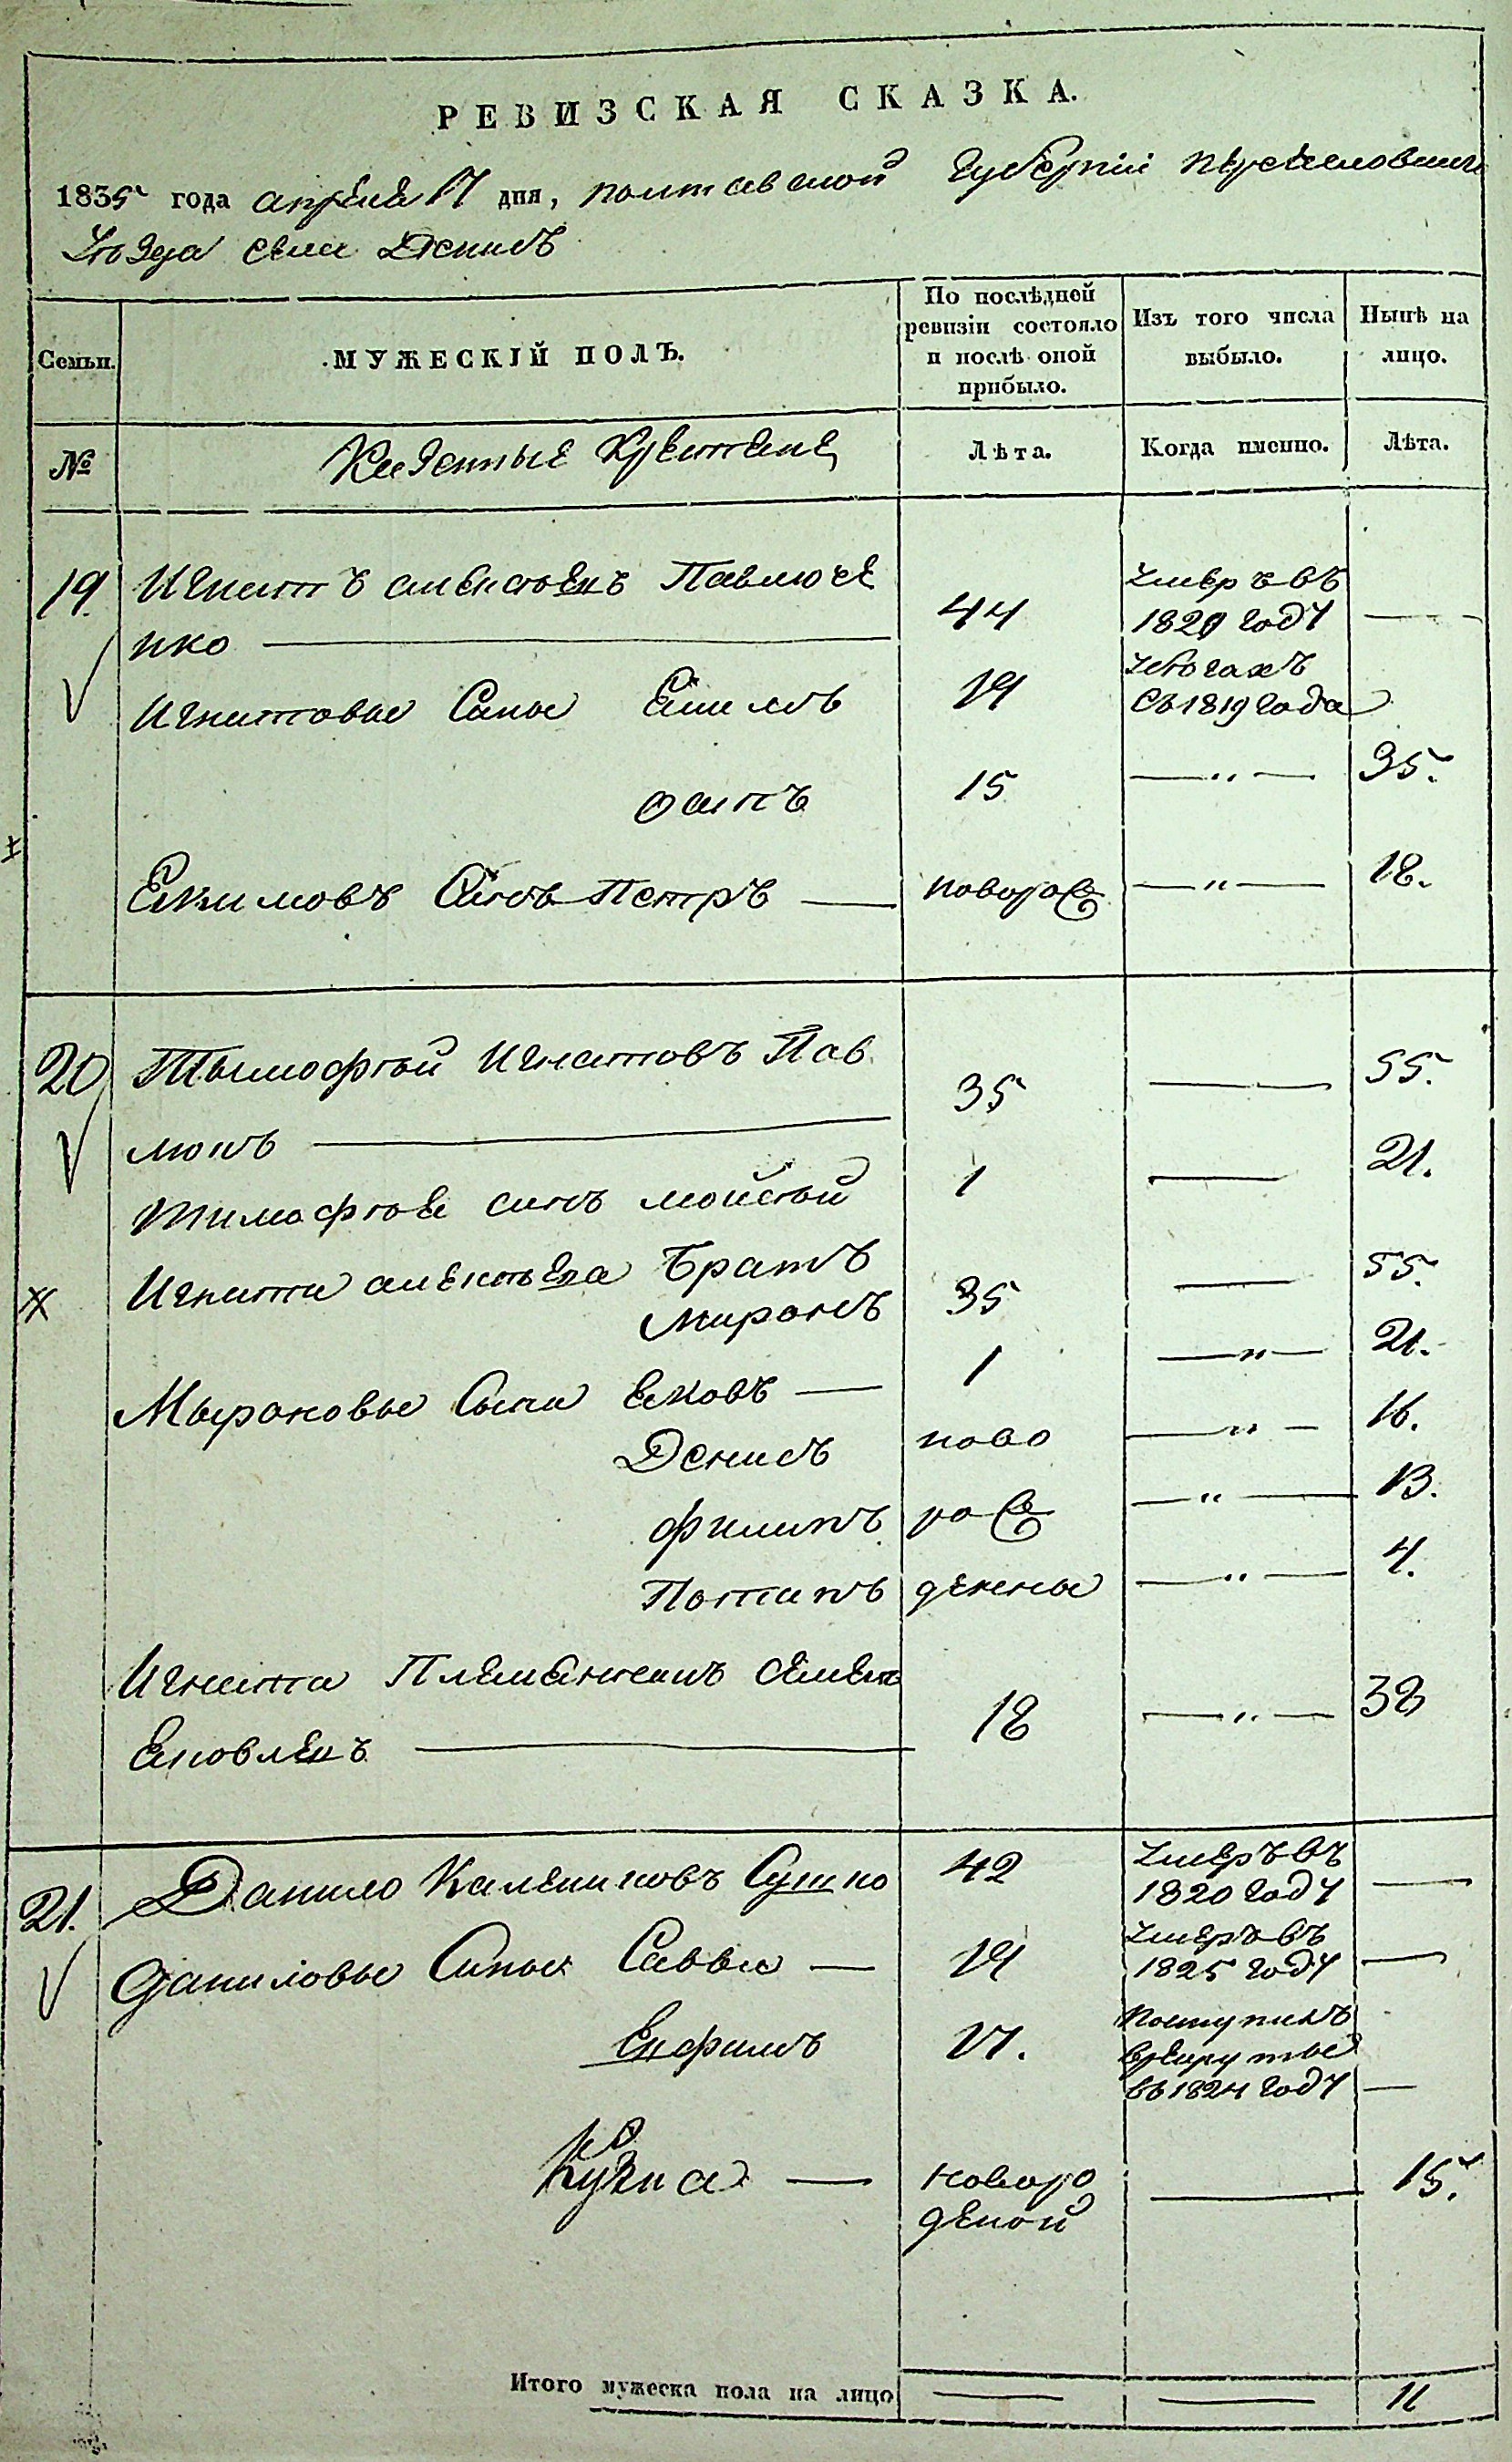 РЕВИЗСКАЯ СКАЗКА.
1835 года апреля 17 дня, полтавской Губернии переяславського
Уезда села
Семьи.
МУЖЕСКІЙ ПОЛЪ.
По послѣдней ревизіи состояло и послѣ оной прибыло.
Изъ того числа выбыло.
Нынѣ на лицо.
№
Казенные Крестяне
Лѣта.
Когда именно.
Лѣта.
19. Игнатъ алексѣевъ Павлюче 44 Умеръ въ
нко 1820 году
Игнатовы Сыны Екимъ 19 У бѣгахъ
съ 1819 года
осипъ 15 35.
Екимовъ Синъ Петръ новорож 18.
20 Тымофѣй Игнатовъ Пав 35 55.
люкъ
тимофѣя синъ мойсѣй 1 21.
Игната алексѣева Братъ
миронъ 35 55.
Мыроновы Сыни Яковъ 1 21.
Денисъ ново 16.
филипъ рож 13.
Потапъ денны 4.
Игната Племянникъ Семенъ 18 38
Яковлевъ
21. Данило Калениковъ Сушко 42 Умеръ въ
1820 году
даниловы Сины Савва 19 Умеръ въ
1825 году
Ефимъ 17. Поступилъ
в рекруты
въ 1824 году
Кузма новоро 15.
деной
Итого мужеска пола на лицо 11